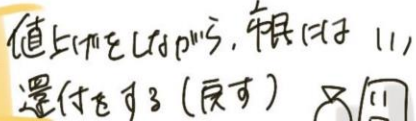 値上げをしながら、市民には
還付をする(戻す)